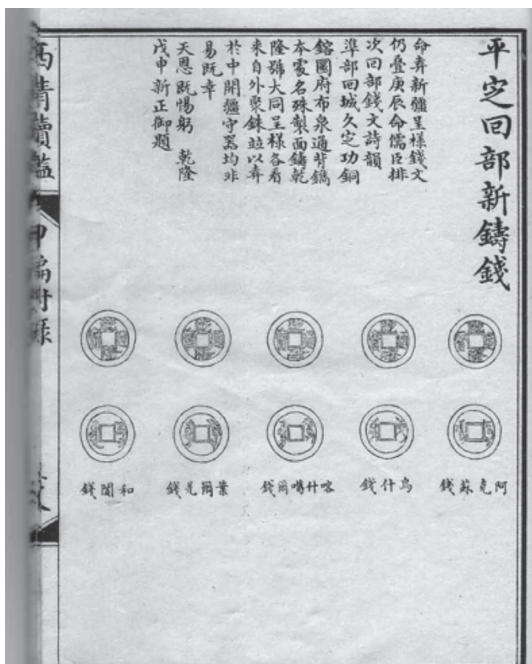 平定回部新鑄錢
命弆新疆呈樣錢文
仍疊庚辰命儒臣排
次回部錢文詩韻
準部回城久定功銅
鎔圜府布泉通背鐫
本處名殊製面鑄乾
隆號大同呈樣各看
來自外聚銖並以弆
於中開疆守器均非
易既幸
天恩既惕躬 乾隆
戊申新正御題
阿克蘇錢
烏什錢
喀什噶爾錢
葉爾羌錢
和闐錢
西清續鑑
甲編附錄